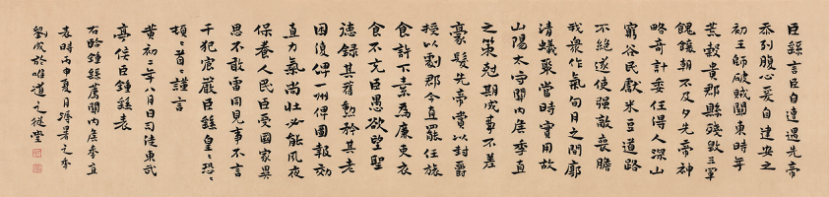 臣繇言臣自遭遇先帝
忝列腹心爰自建安之
初王師破賊關東時年
荒穀貴郡縣殘毀三軍
餽饟朝不及夕先帝神
略奇計委任得人深山
窮谷民獻米豆道路
不絕遂使強敵喪膽
我眾作氣旬月之間廓
清蟻聚當時實用故
山陽太守關內侯季直
之策剋期成事不差
豪髮先帝賞以封爵
授以劇郡今直罷任旅
食許下素為廉吏衣
食不充臣愚欲望聖
德錄其舊勳矜其老
困復俾一州俾圖報效
直力氣尚壯必能夙夜
保養人民臣受國家異
恩不敢雷同見事不言
干犯宸嚴臣繇皇々恐々
頓々首々謹言
黃初二年八月日司徒東武
亭侯臣鍾繇表
右臨鍾繇薦關內侯季直
表時丙申夏月
於唯道之從堂